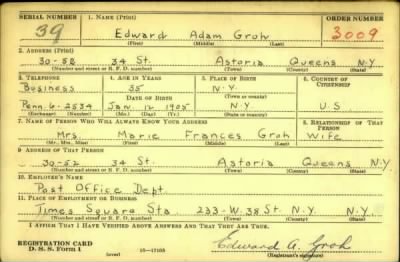 SERIAL NUMBER 1. NAME (Print) ORDER NUMBER
39 Edward Adam Groh 3009
(First) (Middle) (Last)
2. ADDRESS (Print)
30-52 34 St. Astoria Queens N.Y.
(Number and street or R. F. D. number) (Town) (County) (State)
3. TELEPHONE 4. AGE IN YEARS 5. PLACE OF BIRTH 6. COUNTRY OF CITIZENSHIP
Business 35 N.Y.
DATE OF BIRTH (Town or county)
Penn. 6-2534 Jan. 12 1905 N.Y. U.S.
(Exchange) (Number) (Mo.) (Day) (Yr.) (State or country)
7. NAME OF PERSON WHO WILL ALWAYS KNOW YOUR ADDRESS 8. RELATIONSHIP OF THAT PERSON
Mrs. Marie Frances Groh Wife
(Mr., Mrs., Miss) (First) (Middle) (Last)
9. ADDRESS OF THAT PERSON
30-52 34 St. Astoria Queens N.Y.
(Number and street or R. F. D. number) (Town) (County) (State)
10. EMPLOYER'S NAME
Post Office Dept.
11. PLACE OF EMPLOYMENT OR BUSINESS
Times Square Sta. 233-W. 38 St. N.Y. N.Y.
(Number and street or R. F. D. number) (Town) (County) (State)
I AFFIRM THAT I HAVE VERIFIED ABOVE ANSWERS AND THAT THEY ARE TRUE.
REGISTRATION CARD
D. S. S. Form 1 (over) 16—17105 Edward A. Groh
(Registrant's signature)